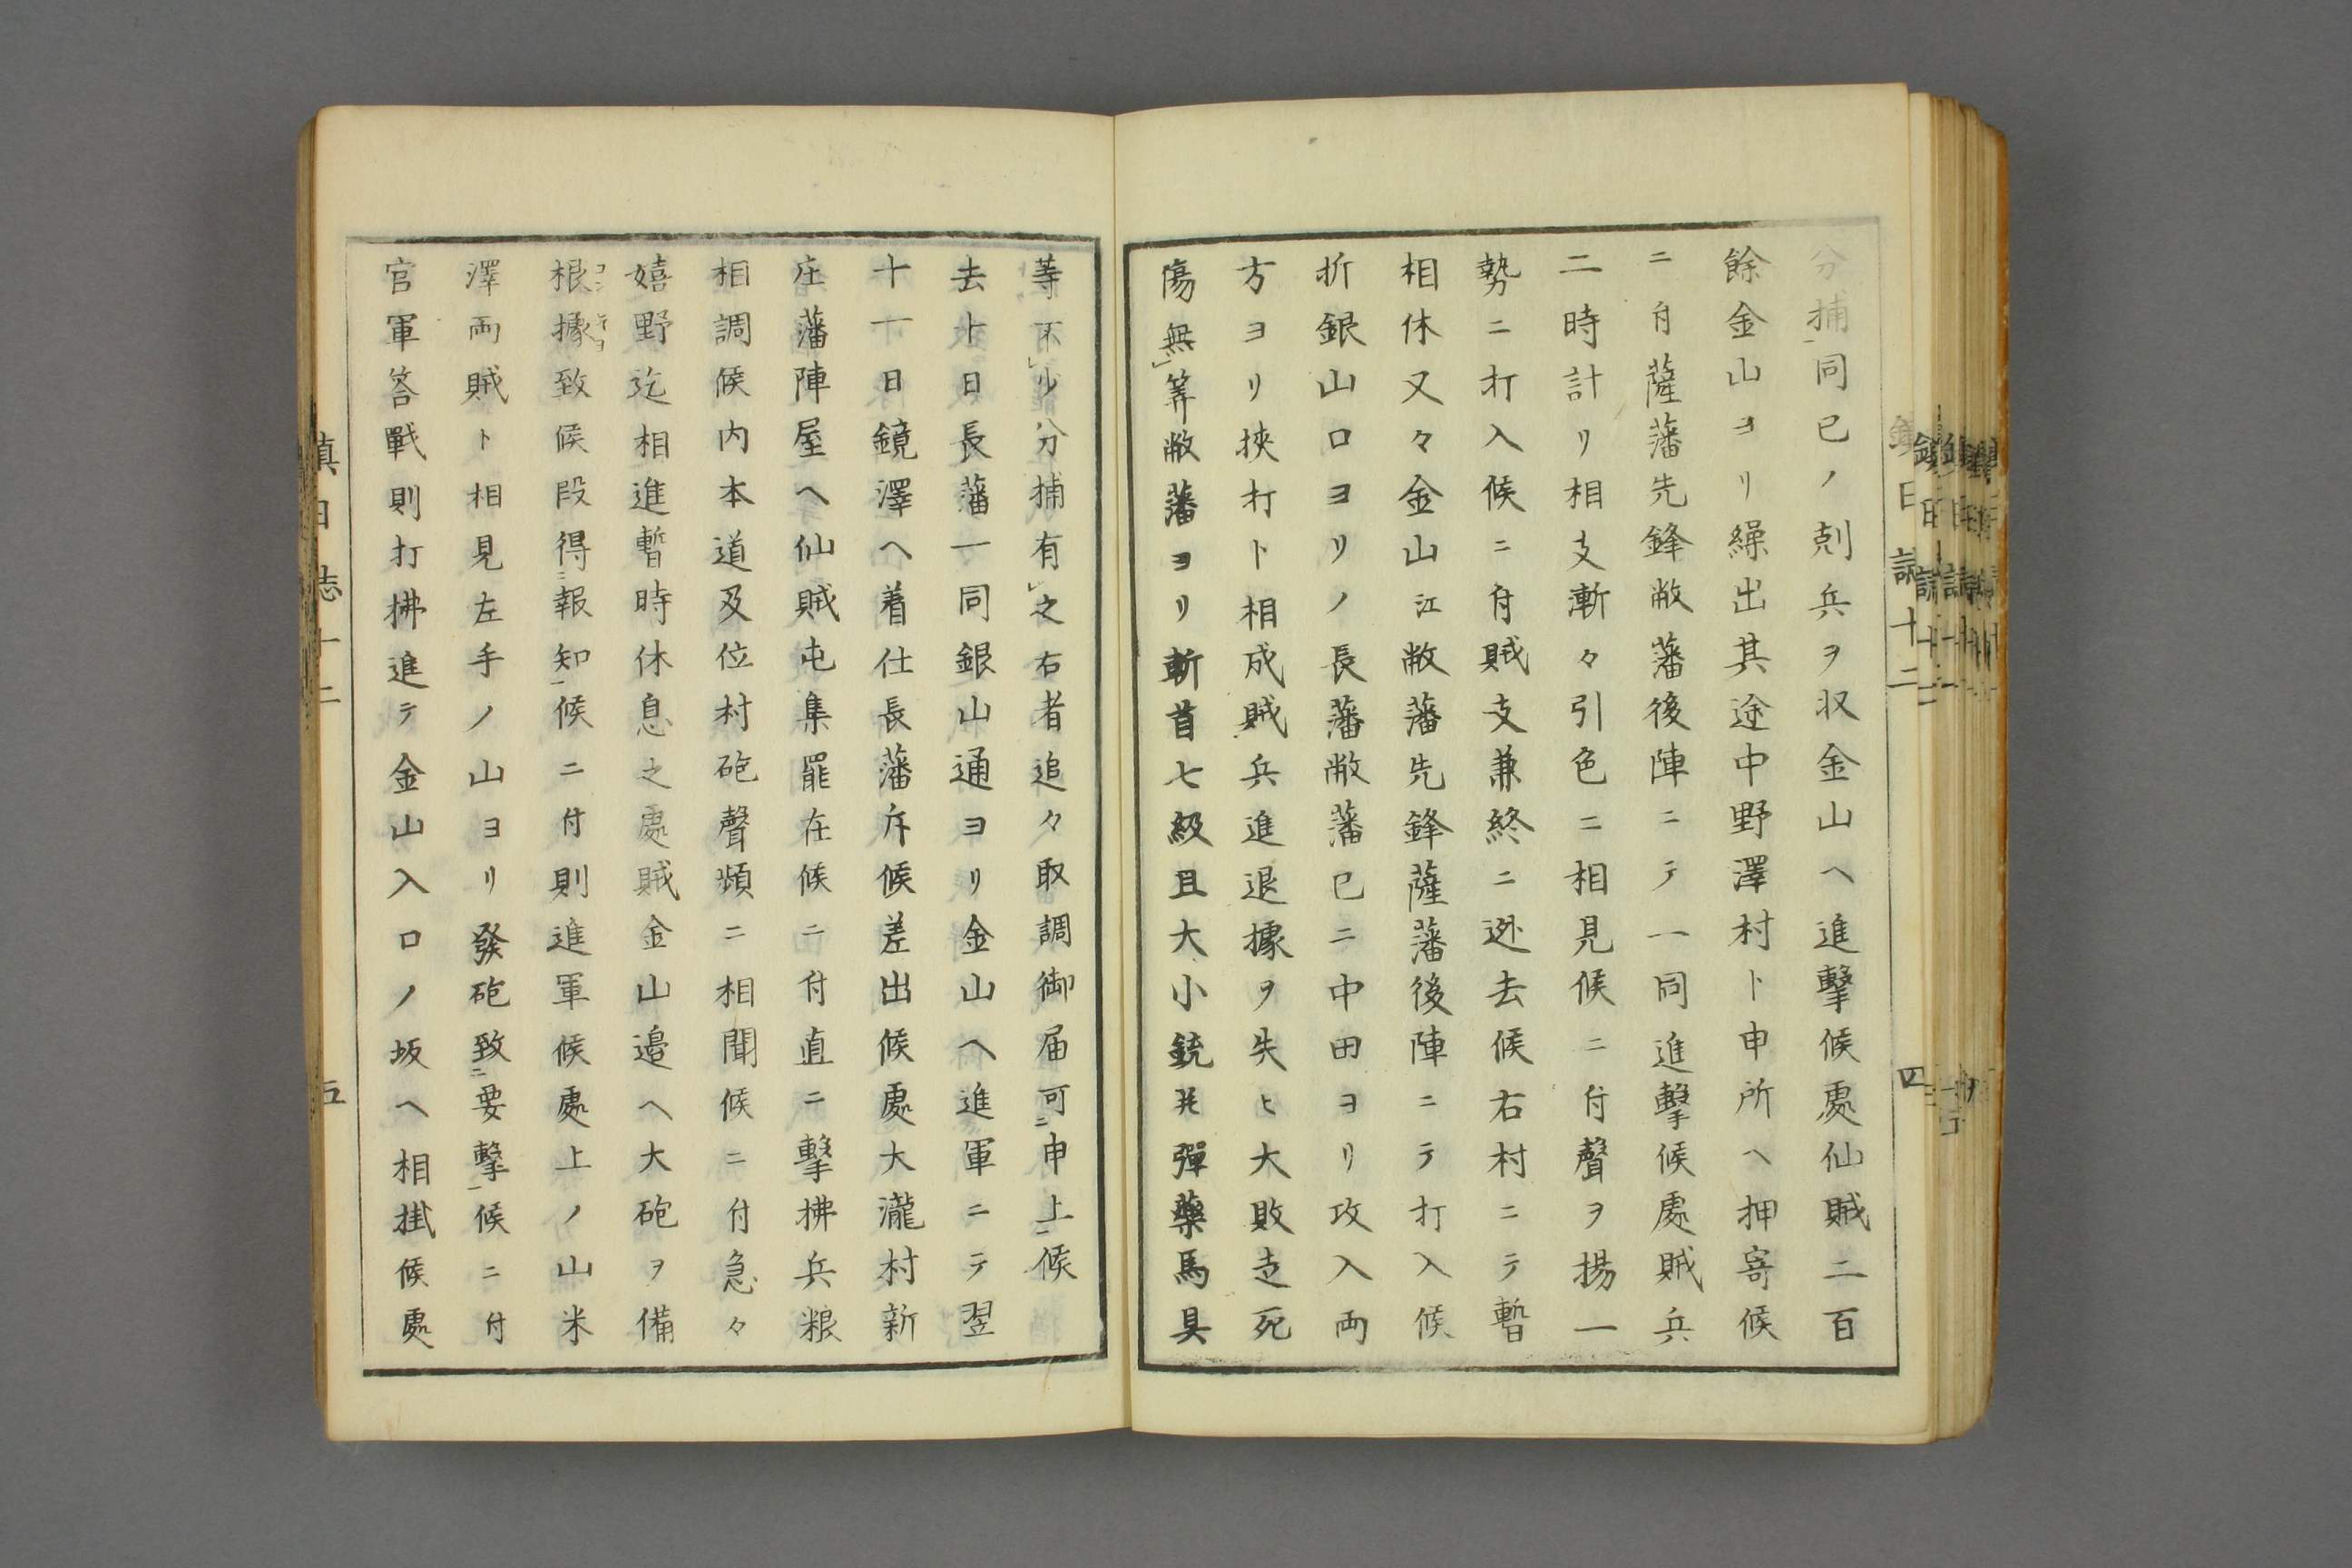 分捕同巳ノ剋兵ヲ収金山ヘ進擊候處仙賊二百
餘金山ヨリ繰出其途中野澤村ト申所ヘ押寄候
ニ付薩藩先鋒敝藩後陣ニテ一同進擊候處賊兵
二時計リ相支漸々引色ニ相見候ニ付聲ヲ揚一
勢ニ打入候ニ付賊支兼終ニ迯去候右村ニテ暫
相休又々金山江敝藩先鋒薩藩後陣ニテ打入候
折銀山口ヨリノ長藩敝藩已ニ中田ヨリ攻入両
方ヨリ挾打ト相成賊兵進退據ヲ失ヒ大敗走死
傷無二筭敝藩ヨリ斬首七級且大小銃玊彈藥馬具
等不レ少分捕有レ之右者追々取調御届可二申上一候
去十日長藩一同銀山通ヨリ金山ヘ進軍ニテ翌
十一日鏡澤ヘ着仕長藩斥候差出候處大瀧村新
庄藩陣屋ヘ仙賊屯集罷在候ニ付直ニ擊拂兵粮
相調候内本道及位村砲聲頻ニ相聞候ニ付急々
嬉野迄相進暫時休息之處賊金山邉ヘ大砲ヲ備
根據致候段得二報知一候ニ付則進軍候處上ノ山米
澤両賊ト相見左手ノ山ヨリ發砲致二要擊一候ニ付
官軍答戰則打拂進テ金山入口ノ坂ヘ相掛候處
鎮日誌十二
四
鎮日誌十二
五